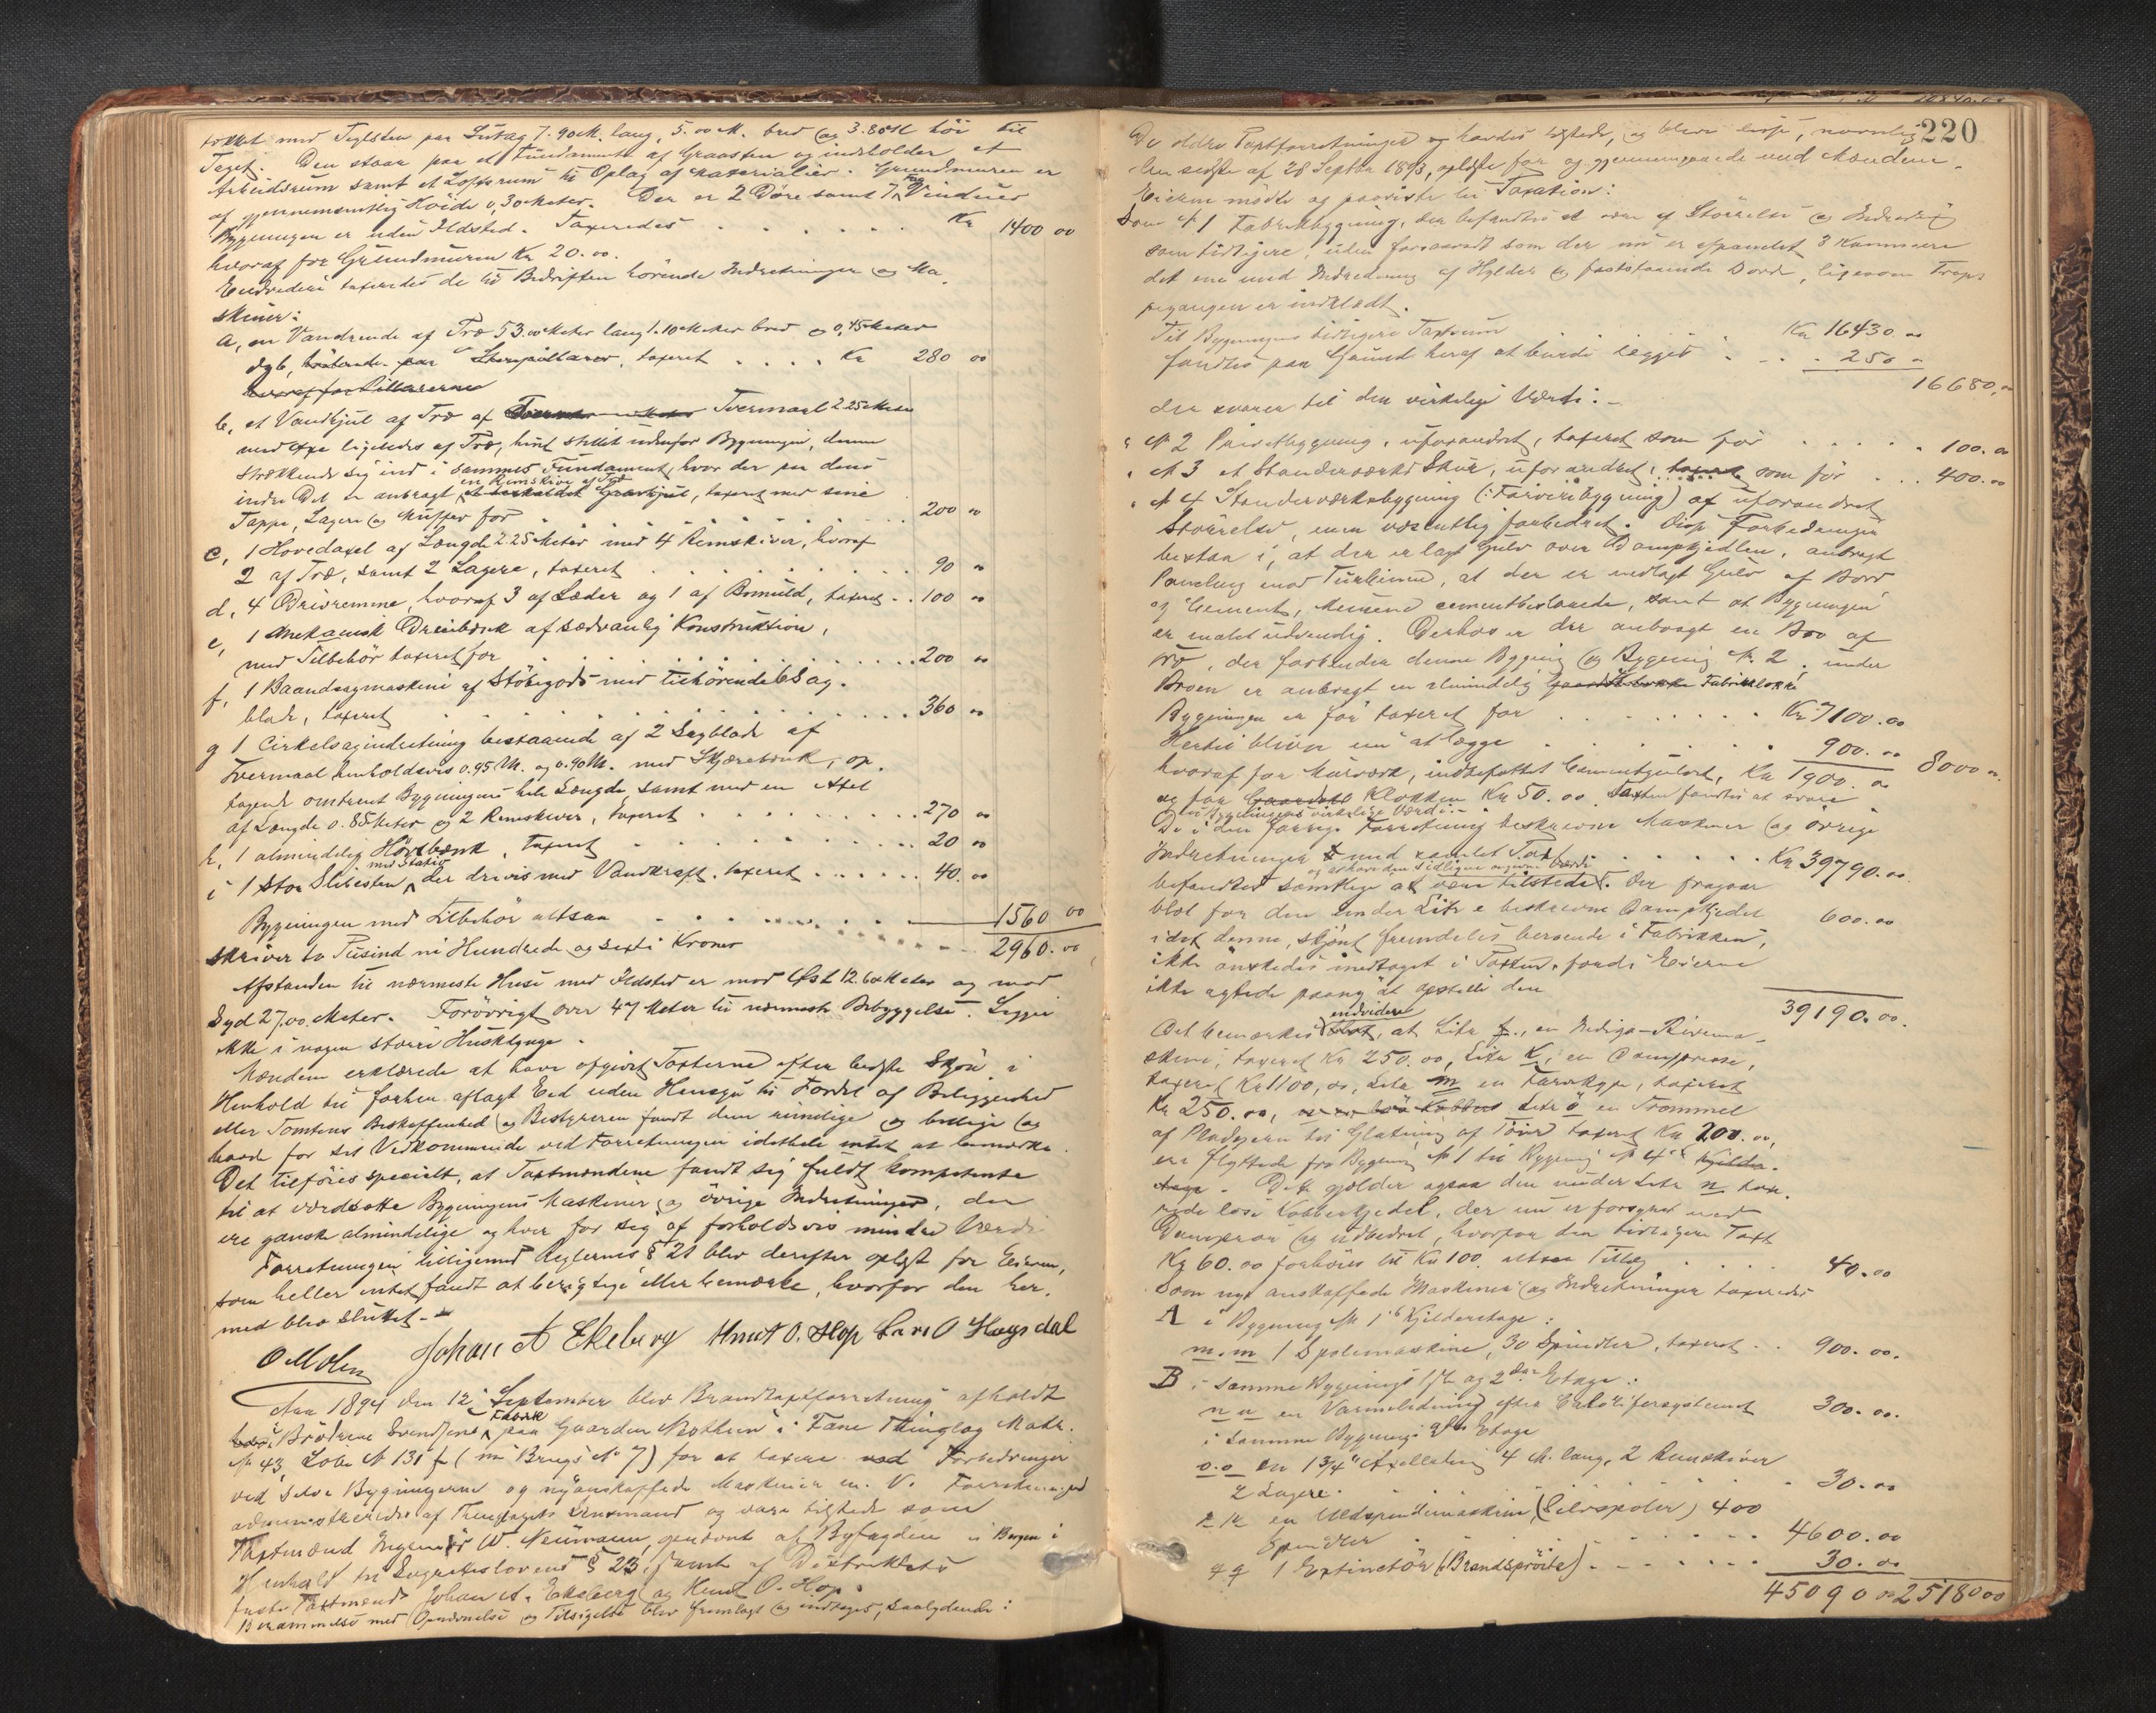 tækket med Teglsten paa Sutag 7.90 M. lang, 5.00 M. bred og 3.80 M høi til
Taget. Den staar paa et Fundament af Graasten og indeholder et
Arbeidsrum samt et Loftsrum til Oplag af Materialier. Grundmuren er
af gjennemsnitlig Høide 0,30 Meter. Der er 2 Døre samt 7 Fag Vinduer
Bygningen er uden Ildsted. Taxeredes . . . . . . Kr 1400 00
hvoraf for Grundmuren Kr 20.00.
Endvidere taxeredes de til Bedriften hørende Indretninger og Ma-
skiner:
a, en Vandrende af Træ 53.00 Meter lang 1.10 Meter bred og 0,45 Meter
dyb, hvilende paa Stenpillarer, taxeret . . . . Kr 280 00
hvoraf for Pillarerne
b, et Vandhjul af Træ af Tvermaal 2.25 Meter
med Axe ligeledes af Træ, hint stillet udenfor Bygningen, denne
strækkende sig ind i sammes Fundament, hvor der paa dens
en Remskive af Træ
indre Del er anbragt et saakaldet Gravhjul, taxeret med sine
Tappe, Lagere og Muffer for . . . . . . 200 "
c, 1 Hovedaxel af Længde 2.25 Meter med 4 Remskiver, hvoraf
2 af Træ, samt 2 Lagere, taxeret . . . . . . 90 "
d, 4 Drivremme, hvoraf 3 af Læder og 1 af Bomuld, taxeret . . 100 "
e, 1 mekanisk Dreiebænk af sædvanlig Konstruktion,
med Tilbehør taxeret for . . . . . . 200 "
f, 1 Baandsagmaskine af Støbegods med tilhørende 6 Sag-
blade, taxeret . . . . . . 360 "
g 1 Cirkelsagindretning bestaaende af 2 Sagblade af
Tvermaal henholdsvis 0.95 M. og 0.90 M. med Skjærebænk, op-
tagende omtrent Bygningens hele Længde samt med en Axel
af Længde 0.85 Meter og 2 Remskiver, taxeret . . . . . . 270 "
h, 1 almindelig Høvlbænk, taxeret . . . . . . 20 "
med Stativ
i 1 stor Slibesten, der drives med Vandkraft, taxeret . . . . . . 40. "
1560 00
Bygningen med Tilbehør altsaa . . . . . . 2960.00
skriver to Tusind ni Hundrede og sexti Kroner
Afstanden til nærmeste Huse med Ildsted er mod Øst 12.60 Meter og mod
Syd 27,00 Meter. Forøvrigt over 47 Meter til nærmeste Bebyggelse. Ligger
ikke i nogen større Husklynge.
Mændene erklærede at have afgivet Taxterne efter bedste Skjøn i
Henhold til forhen aflagt Eed uden Hensyn til Fordel af Beliggenhed
eller Tomtens Beskaffenhed og Bestyreren fandt dem rimelige og billige og
havde for sit Vedkommende ved Forretningen idethele intet at bemærke.
Det tilføies specielt, at Taxtmændene fandt sig fuldt kompetente
til at værdsætte Bygningens Maskiner og øvrige Indretninger, der
ere ganske almindelige og hver for sig af forholdsvis mindre Værdi.
Forretningen tilligemed Reglernes § 21 blev derefter oplæst for Eieren,
som heller intet fandt at berigtige eller bemærke, hvorfor den her-
med blev sluttet.
O Molen Johan A Ekeberg Knut O. Hop Lars O Hagsdal
Aar 1894 den 12 September blev Brandtaxtforretning afholdt
Fabrik
hos Brødrene Svendsens paa Gaarden Nesttun i Fane Thinglag Matr.
No 43, Løbe No 131 f (nu Brugs No 7) for at taxere Forbedringer
ved selve Bygningerne og nyanskaffede Maskiner m. V. Forretningen
administreredes af Thinglagets Lensmand og vare tilstede som
Taxtmænd Ingeniør W. Neumann, opnævnt af Byfogden i Bergen i
Henhold til Sagførerlovens § 23, samt af Distriktets
faste Taxtmænd Johan A. Ekeberg og Knut O. Hop.
Berammelse med Opnævnelse og Tilsigelse blev fremlagt og indtages, saalydende:
220
De ældre Taxtforretninger havdes tilstede, og bleve disse, navnlig
den sidste af 28 Septbr 1893, oplæste for og gjennemgaaede med Mændene.
Eierne mødte og paaviste til Taxation:
Som No 1 Fabrikbygning, der befandtes at være af Størrelse og Indredning
som tidligere, uden forsaavidt som der nu er afpanelet 3 Kammere
det ene med Indredning af Hylder og faststaaende Borde, ligesom Trappe-
opgangen er indklædt.
Til Bygningens tidligere Taxtsum . . . . Kr 16430.00
fandtes paa Grund heraf at burde lægges . . . 250 "
16680,00
der svarer til den virkelige Værdi: —
" No 2 Privetbygning, uforandret, taxeret som før . . . . . . 100.00
" No 3 et Standerværks Skur, uforandret, taxeret som før . . . 400.00
" No 4 Standerværksbygning (: Farveribygning) af uforandret
Størrelse, men væsentlig forbedret. Disse Forbedringer
bestaa i, at der er lagt Gulv over Dampkjedlen, anbragt
Paneling mod Turbinen, at der er nedlagt Gulv af Bord
og Cement, Murene cementbestrøgede, samt at Bygningen
er malet udvendig. Derhos er der anbragt en Bro af
Træ, der forbinder denne Bygning og Bygning No 2, under
Broen er anbragt en almindelig Gaardsklokke Fabrikklokke
Bygningen er før taxeret for . . . . . . Kr. 7100.00
Hertil bliver nu at lægge . . . . . . 900.00
hvoraf for Murværk, indbefattet Cementgulvet, Kr 1900.00 8000 "
og for Klokken Kr 50.00 Taxten fandtes at svare
til Bygningens virkelige Værdi.—
De i den forrige Forretning beskrevne Maskiner og øvrige
Indretninger med samlet Taxt . . . . . . Kr 39790.00
og at have den tidligere angivne Værdi
befandtes samtlige at være tilstede. Der fragaar
blot for den under Litr e beskrevne Dampkjedel 600.00
idet denne, skjønt fremdeles beroende i Fabrikken,
ikke ønskedes medtaget i Taxten, fordi Eierne
ikke agtede paany at opstille den
39190.00.
endvidere
Det bemærkes blot, at Litr f., en Indigo-Rivema-
skine, taxeret Kr 250.00, Litr K, en Damppresse,
taxeret Kr 1100,00, Litr m en Farvekype, taxeret
Kr 250.00, Litr ö en Trommel
af Pladejern til Glatning af Tøier taxeret Kr 200.00,
ere flyttede fra Bygning No 1 til Bygning No 4 Kjelder-
etage. Dette gjælder ogsaa den under Litr n taxe-
rede løse Kobberkjedel, der nu er forsynet med
Damprør og udbedret, hvorfor den tidligere Taxt
Kr 60.00 forhøies til Kr 100, altsaa Tillæg . . . . 40.00
Som nye anskaffede Maskiner og Indretninger taxeredes
A i Bygning No 1's Kjelderetage:
m.m 1 Spolemaskine, 30 Spindler, taxeret . . 900.00.
B i samme Bygnings 1ste og 2den Etage:
n n en Varmeledning efter Caloriferesystemet 300.00.
i samme Bygnings Etage
o.o en 1 3/4" Axelledning 4 M. lang, 2 Remskiver
2 Lagere . . . 30.00
en Uldspindemaskine, (Selvspoler) 400
Spindler . . . . . . 4600.00
q q 1 Extinctör (Brandsprøite) . . . . . . 30.00
45090 00 25180 00